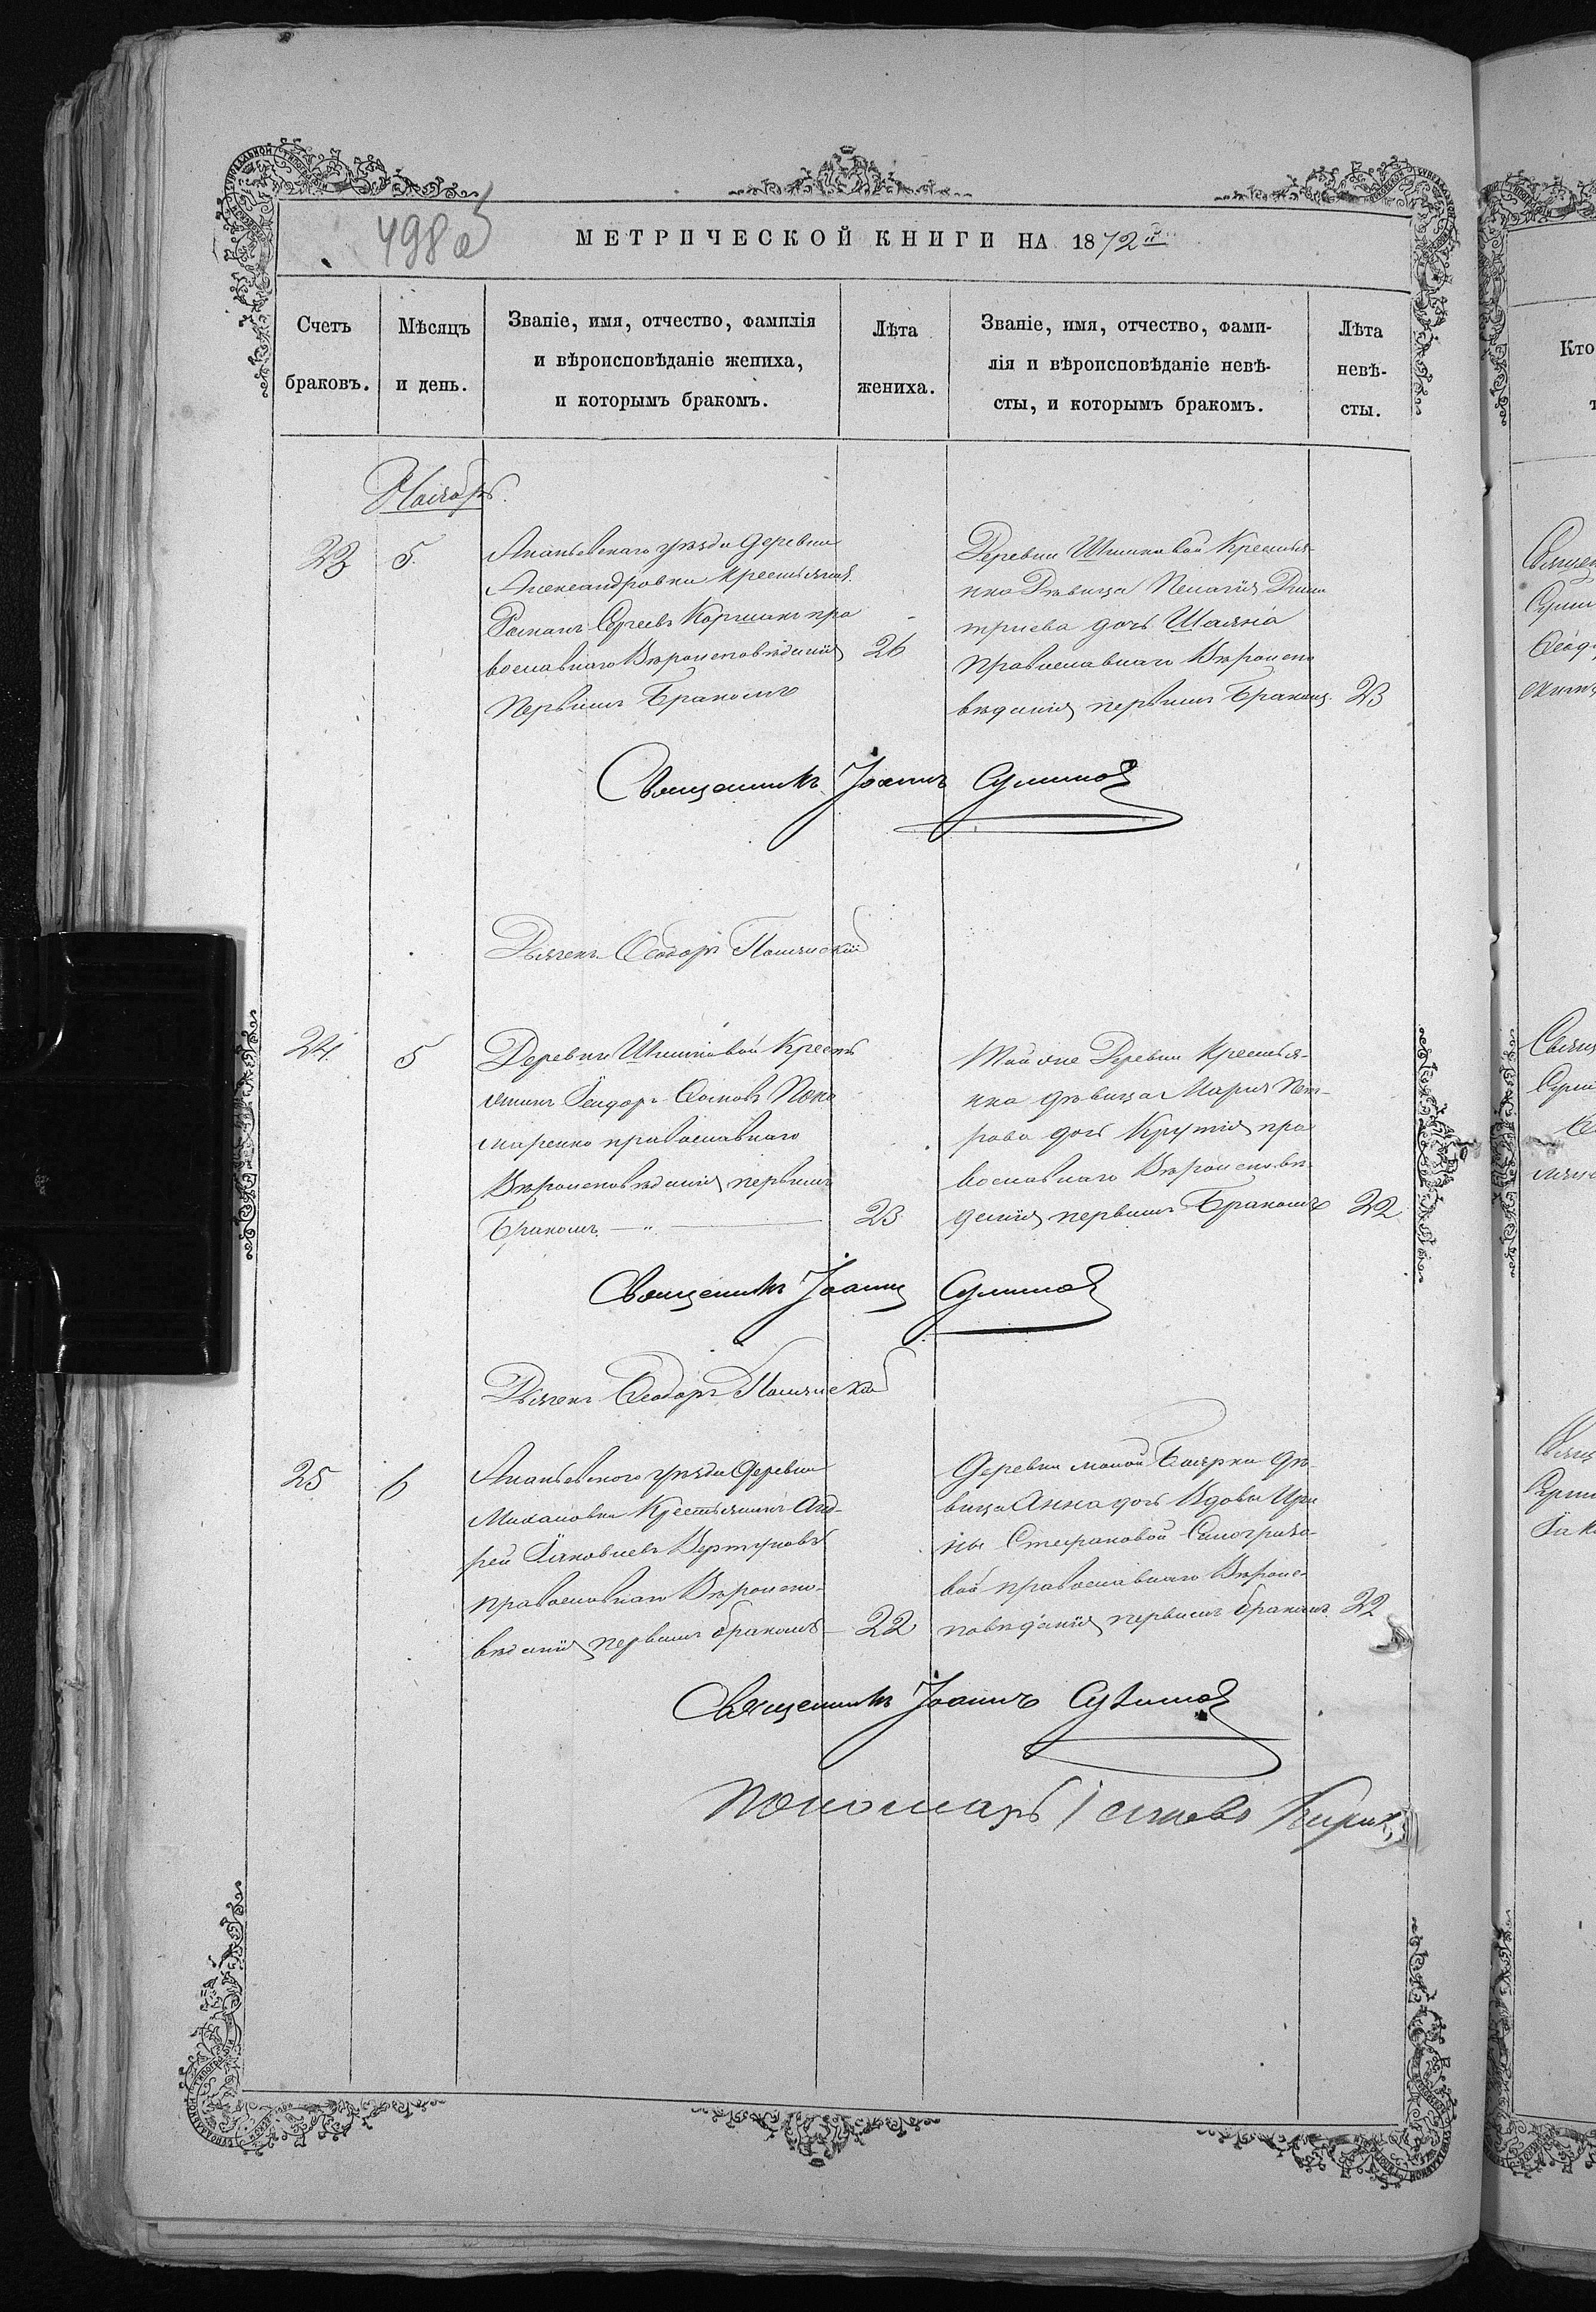 498 об
МЕТРИЧЕСКОЙ КНИГИ НА 1872й
Счетъ браковъ.
Мѣсяцъ и день.
Званіе, имя, отчество, фамилія
и вѣроисповѣданіе жениха,
и которымъ бракомъ.
Лѣта жениха.
Званіе, имя, отчество, фами-
лія и вѣроисповѣданіе невѣ-
сты, и которымъ бракомъ.
Лѣта
невѣ-
сты.
Ноябрь.
23
5.
Ананьевскаго уѣзда деревни
Александровки крестьянинъ
Романъ Сергеевъ Коршакъ пра
вославнаго Вѣроисповѣданія
Первымъ Бракомъ
26
Деревни Шишковой Крестья-
нка Дѣвица Пелагія Дими
тріева дочь
Православнаго Вѣроиспо
вѣданія первымъ Бракомъ.
23
Священникъ Іоаннъ Сулимов
Дьячекъ Ѳеодоръ
24.
5
Деревни Шишковой Кресть
янинъ Ѳеодоръ Поно
маренко православнаго
Вѣроисповѣданія первымъ
Бракомъ — „ —
23
Той же Деревни Крестья-
нка дѣвица Марія Пет-
рова дочь Крутія пра
вославнаго Вѣроисповѣ-
данія первымъ Бракомъ
22
Священникъ Іоаннъ Сулимов
Дьячекъ Ѳеодоръ
25
6
Ананьевского уѣзда Деревни
Михаловки Крестьянинъ Анд-
рей Іаковлевъ
православнаго Вѣроиспо-
вѣданія первымъ бракомъ —
22
Деревни малой Боярки дѣ-
вица Анна дочь Вдовы Ири
ны Стефановой
вой православнаго Вѣроис-
повѣданія первымъ бракомъ
22
Священникъ Іоаннъ Сулимов
Пономарь
Кто